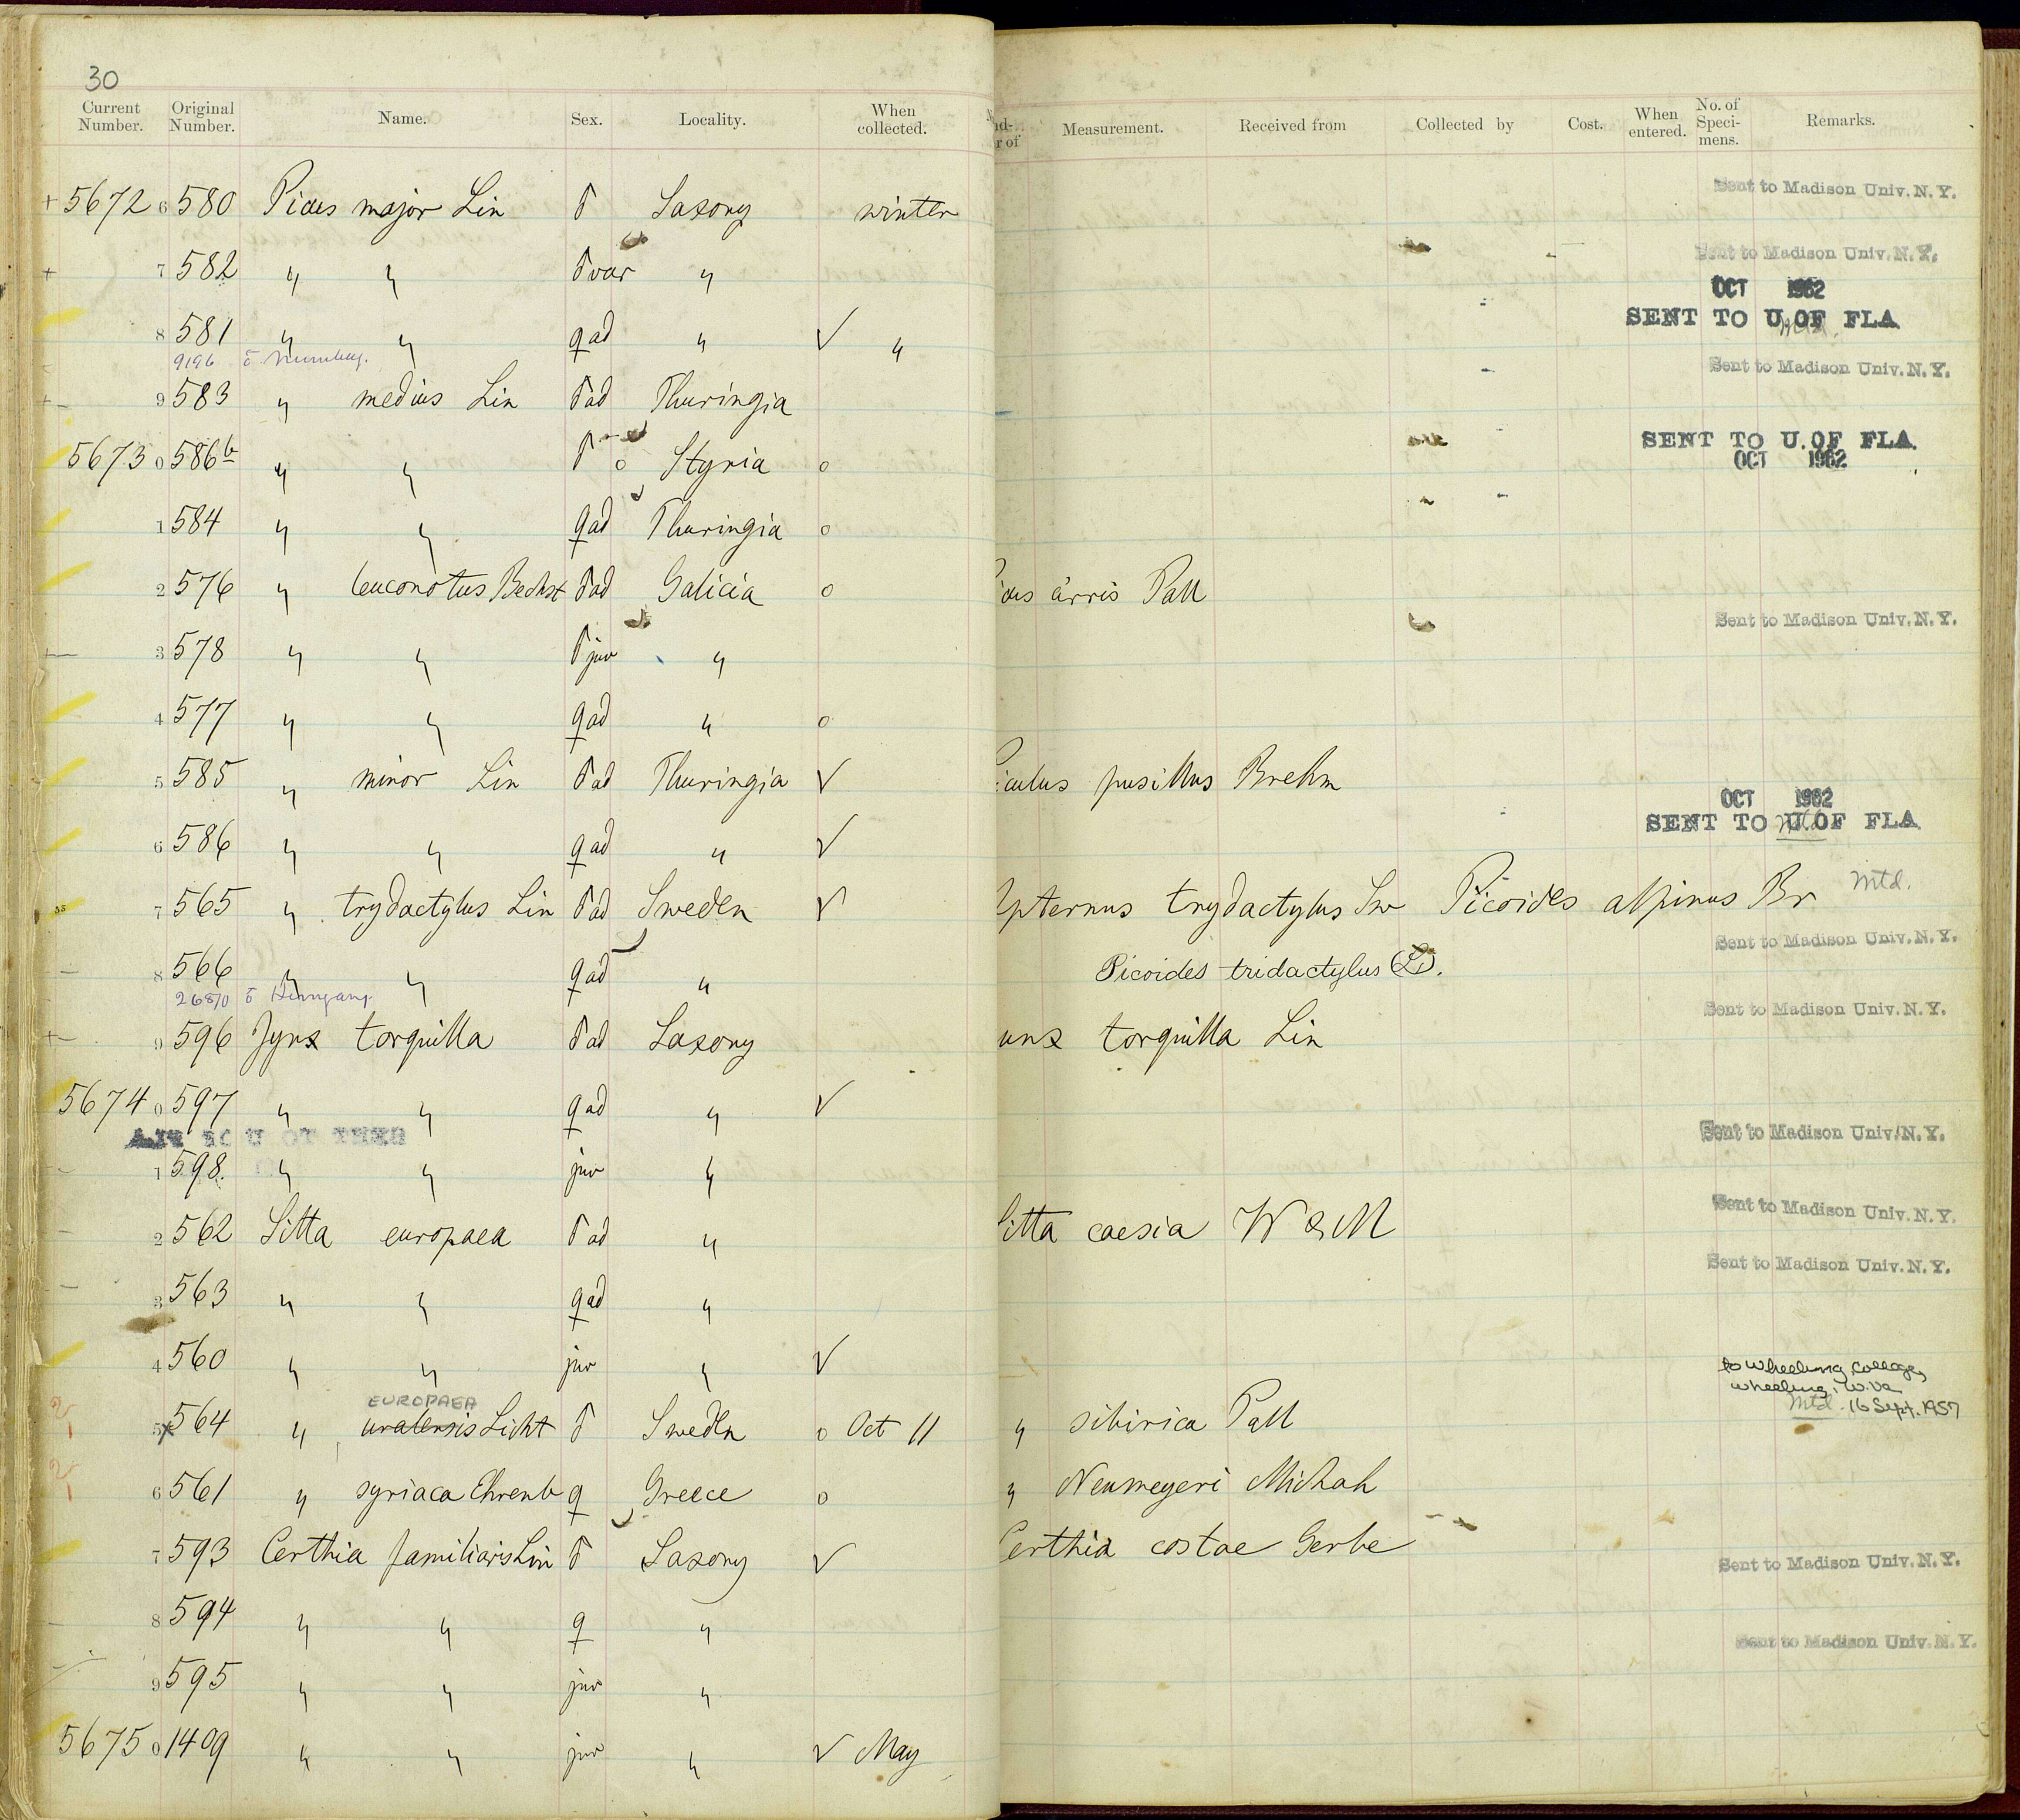 30
Current Number. Original Number. Name. Sex. Locality. When collected. Measurement. Received from Collected by Cost. When entered. No. of Speci-mens. Remarks.
+ 5672 6 580 Picus major Lin ♂ Saxony winter Sent to Madison Univ. N. Y.
+ 7 582 " " ♂ var " Sent to Madison Univ. N. Y.
OCT 1962
8 581 " " ♀ ad " √ " SENT TO U.OF FLA
9196
9 583 " medius Lin ♂ ad Thuringia Sent to Madison Univ. N. Y.
5673 0 586b " " ♂ o Styria o SENT TO U.OF FLA.
OCT 1962
1 584 " " ♀ ad Thuringia o
2 576 " leuconotus Bechst ♂ ad Galicia o Pall
3 578 " " ♂ juv " Sent to Madison Univ. N. Y.
4 577 " " ♀ ad " o
5 585 " minor Lin ♂ ad Thuringia √ iculus pusillus Brehm
OCT 1962
6 586 " " ♀ ad " √ SENT TO U.OF FLA
7 565 " trydactylus Lin ♂ ad Sweden √ Apternus trydactylus Sw Picoides alpinus Br Mtd.
8 566 " " ♀ ad " Picoides tridactylus (L). Sent to Madison Univ. N. Y.
26870 ♂ Hungary.
9 596 Jynx torquilla ♂ ad Saxony unx torquilla Lin Sent to Madison Univ. N. Y.
5674 0 597 " " ♀ ad " √
1 598. " " juv " Sent to Madison Univ. N. Y.
2 562 Sitta europaea ♂ ad " Sitta caesia W & M Sent to Madison Univ. N. Y.
3 563 " " ♀ ad " Sent to Madison Univ. N. Y.
4 560 " " juv " √
to Wheeling College,
Wheeling, W. Va
EUROPAEA
5 564 " uralensis Licht ♂ Sweden o Oct 11 " sibirica Pall Mtd. 16 Sept. 1957
6 561 " syriaca Ehrenb ♀ Greece o " Neumeyeri Michah
7 593 Certhia familiaris Lin ♂ Saxony √ Certhia costae Gerbe
8 594 " " ♀ " Sent to Madison Univ. N. Y.
9 595 " " juv " Sent to Madison Univ. N. Y.
5675 0 1409 " " juv " √ May